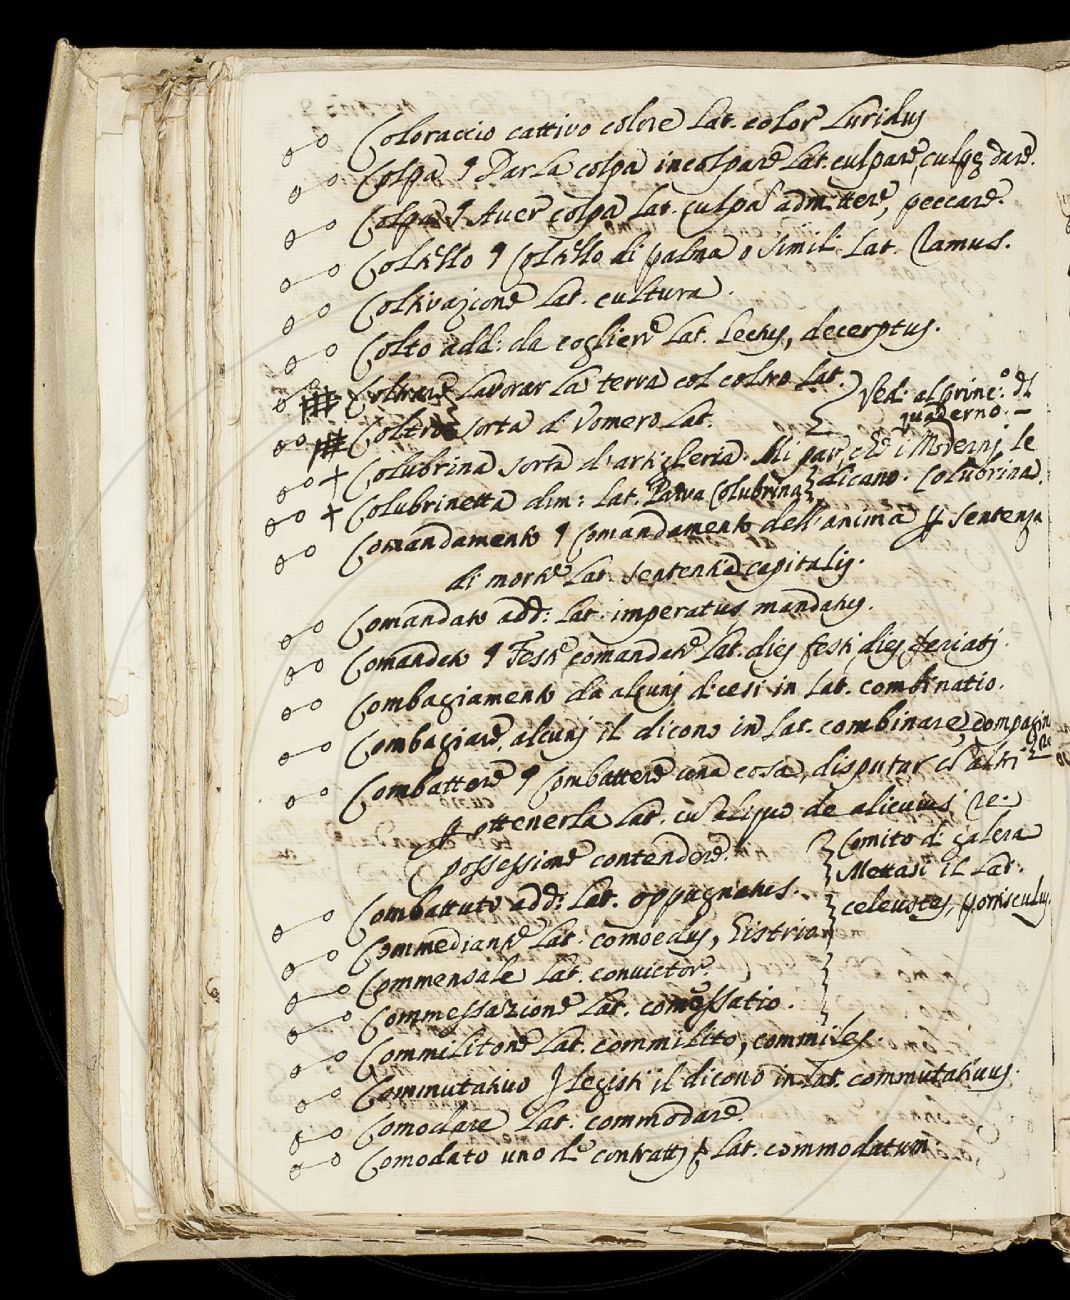 Coloraccio cattivo colore Lat. color Luridus
Colpa ¶ Dar La colpa incolpare Lat. culpare, culpae dare.
Colpa ¶ Aver colpa Lat. culpā admittere, peccare.
Coltello ¶ Coltello di palma o simil: Lat. Ramus.
Coltivazione Lat. cultura.
Colto add: da cogliere Lat. Lectus, decerptus.
Coltrare Lavorar La terra col coltro Lat.
Ved: al princ:o del
quaderno. —
Coltro sorta di Vomero Lat.
Colubrina sorta d'artigleria. Mi par che i Moderni le
Colubrinetta dim: Lat. Parva Colubrina dicano. Colubrina.
Comandamento ¶ Comandamento dell'anima p sentenza
di morte Lat. sententia capitalis.
Comandato add: Lat. imperatus mandatus.
Comandato ¶ Feste comandate Lat. dies festi, dies feriati.
Combagiamento da alcuni dicesi in Lat. combinatio.
Combagiare, alcuni il dicono in Lat. combinare, compagin
are
Combattere ¶ Combattere una cosa, disputar cl'altri
p ottenerla Lat. cū aliquo de alicuius re
possessione contendere.
Comito di galera
Mettasi il Lat.
celeustes, portisculus
Combattuto add: Lat. oppugnatus.
Commediante Lat. comoedus, histrio
Commensale Lat. convictor.
Commessazione Lat. comessatio.
Commilitone Lat. commilito, commiles.
Commutativo I legisti il dicono in Lat. commutativus.
Comodare Lat. commodare.
Comodato uno de contratti Lat. commodatum